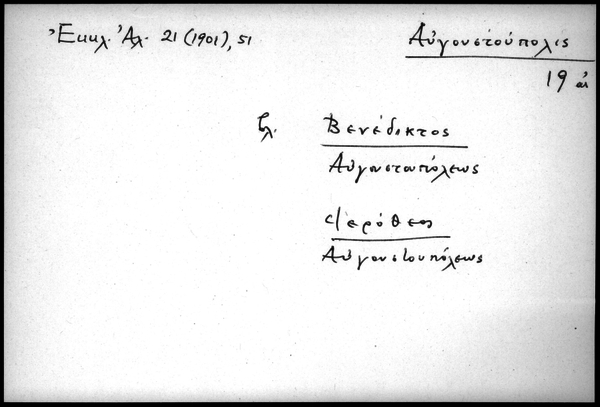 Ἐκκλ. Ἀλ. 21 (1901), 51
Αὐγουστούπολις
19 αἰ
βλ. Βενέδικτος
Αὐγουστουπόλεως
Ἱερόθεος
Αὐγουστουπόλεως